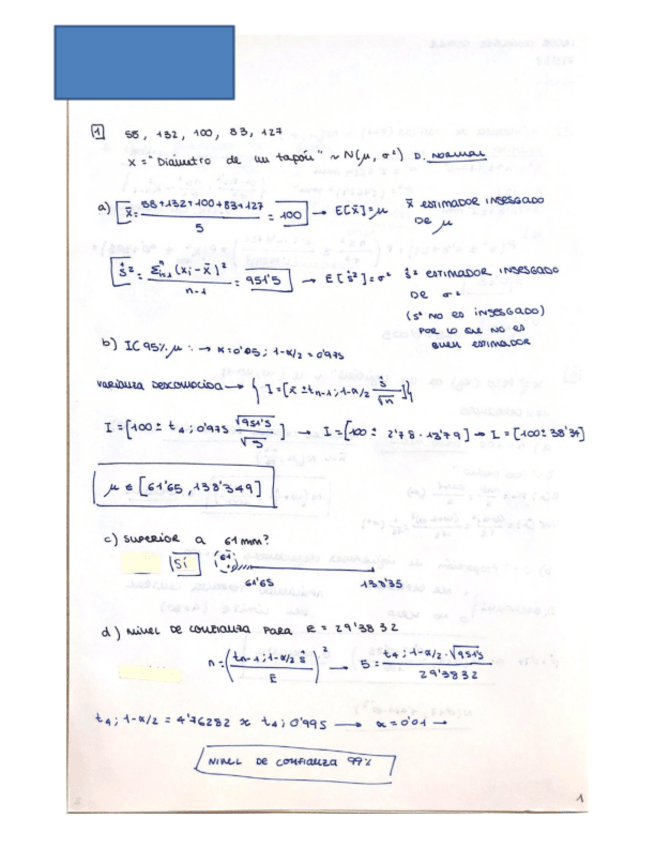 1 58, 132, 100, 83, 127
x = "Diámetro de un tapón" ~ N(μ, σ²) D. NORMAL
a) x̄ = 58+132+100+83+127 / 5 = 100 → E[x̄]=μ x̄ ESTIMADOR INSESGADO DE μ
ŝ² = Σⁿᵢ₌₁ (xi - x̄)² / n-1 = 951'5 → E[ŝ²]=σ² ŝ² ESTIMADOR INSESGADO
DE σ²
(s² NO ES INSESGADO)
POR LO QUE NO ES
BUEN ESTIMADOR
b) IC 95% μ : → α=0'05 ; 1-α/2 = 0'975
VARIANZA DESCONOCIDA → { I = [x̄ ± tn-1 ; 1-α/2 ŝ/√n] }
I = [100 ± t4 ; 0'975 √951'5/√5] → I = [100 ± 2'78 · 13'79] → I = [100 ± 38'34]
μ ∈ [61'65 , 138'349]
c) SUPERIOR A 61 mm?
SÍ (61
61'65 138'35
d) NIVEL DE CONFIANZA PARA E = 29'3832
n = (tn-1 ; 1-α/2 ŝ / E)² → 5 = t4 ; 1-α/2 · √951'5 / 29'3832
t4 ; 1-α/2 = 4'76282 ≈ t4 ; 0'995 → α = 0'01 →
NIVEL DE CONFIANZA 99%
1